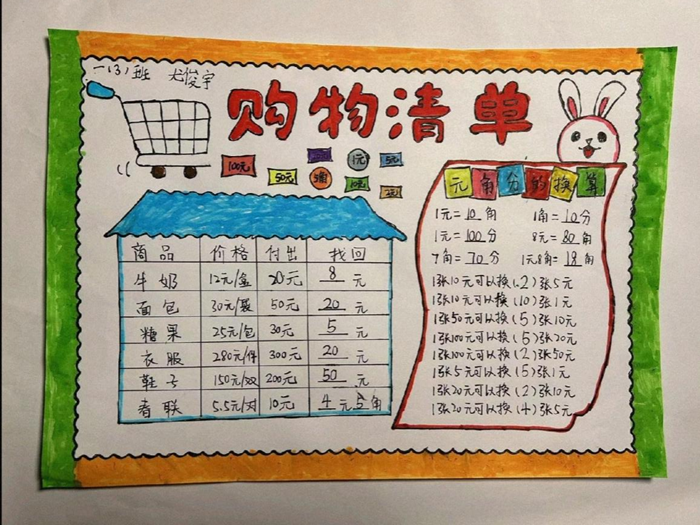 一(3)班 尤俊宇
购物清单
100元 50元 1元 5元
5角 10元
元角分的换算
商品 价格 付出 找回
牛奶 12元/盒 20元 8元
面包 30元/袋 50元 20元
糖果 25元/包 30元 5元
衣服 280元/件 300元 20元
鞋子 150元/双 200元 50元
春联 5.5元/对 10元 4元5角
1元=10角 1角=10分
1元=100分 8元=80角
7角=70分 1元8角=18角
1张10元可以换(2)张5元
1张10元可以换(10)张1元
1张50元可以换(5)张10元
1张100元可以换(5)张20元
1张100元可以换(2)张50元
1张5元可以换(5)张1元
1张20元可以换(2)张10元
1张20元可以换(4)张5元